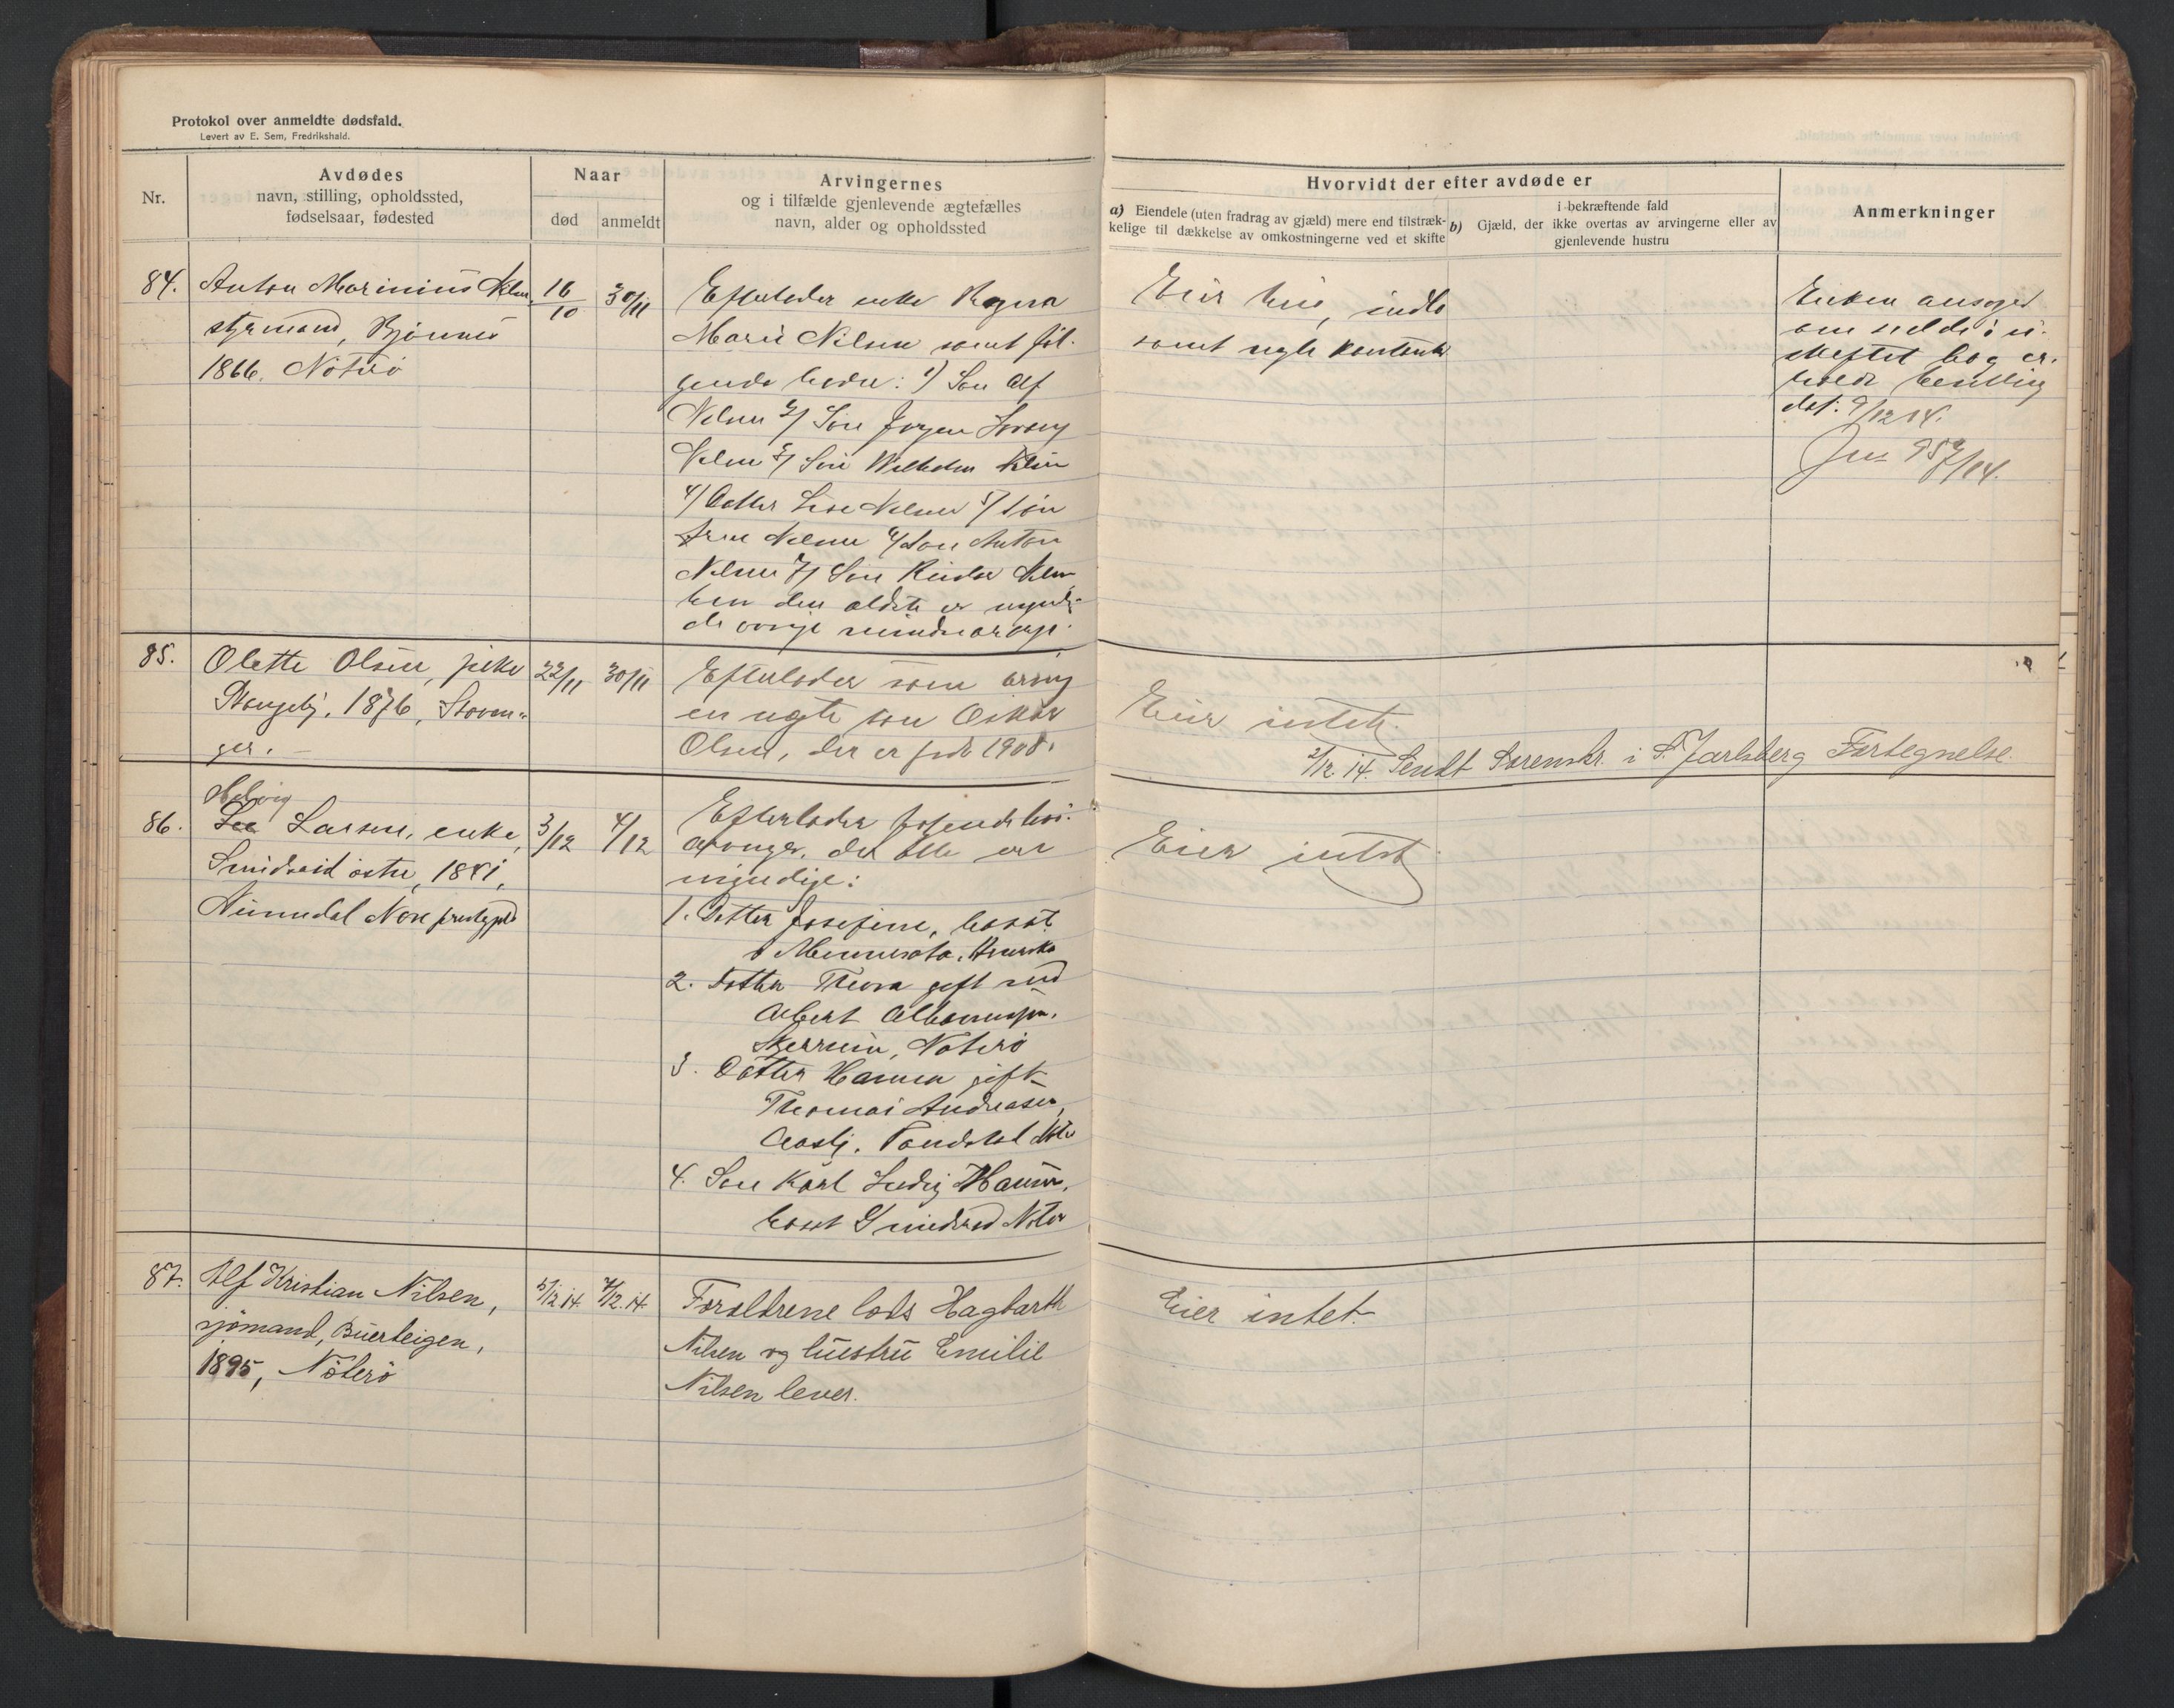 Protokol over anmeldte dødsfald.
Levert av E. Sem, Fredrikshald.
Nr.
Avdødes
navn, stilling, opholdssted,
fødselsaar, fødested
Naar
død
anmeldt
Arvingernes
og i tilfælde gjenlevende ægtefælles
navn, alder og opholdssted
Hvorvidt der efter avdøde er
a) Eiendele (uten fradrag av gjæld) mere end tilstræk-
kelige til dækkelse av omkostningerne ved et skifte
i bekræftende fald
b) Gjæld, der ikke overtas av arvingerne eller av
gjenlevende hustru
Anmerkninger
84.
Anton Marinius Nilsen
styrmand, Bjönnes
1866. Nöterö
16/10
30/11
Efterlader enke Ragna
Marie Nilsen samt föl-
gende barn: 1) Sön Alf
Nilsen 2/ Sön Jörgen
Nilsen 3/ Sön Wilhelm Nilsen
4/ Datter Lise Nilsen 5/ Sön
Nilsen 6/ Sön Anton
Nilsen 7/ Sön Reidar Nilsen
kun den ældste er myndig
de övrige mindreaarige.
Eier hus, indbo
samt nogle kontanter
Enken ansöget
om at sidde i u-
skiftet bo og er-
holdt bevilling
dat. 9/12 14.
Jur 95 9/14.
85.
Olette Olsen, pike
1876, Stavan-
ger.
22/11
30/11
Efterlader som arving
en uægte sön Oskar
Olsen, der er född 1908.
Eier intet.
2/12.14. Sendt Sorenskr. i S. Jarlsberg Fortegnelse.
86.
Helvig
Larsen, enke,
Smidsröd östre, 1841,
Numedal Nore prestegjeld
3/12
4/12
Efterlader fölgende livs-
arvinger, der alle er
myndige:
1. Datter Josefine, bosat
i Minnesota, Amerika
2. Datter Thora gift med
Albert
Skjerrein, Nöterö
3. Datter Hanna gift
Thomas Andreasen,
4. Sön Karl Ludvig Hansen,
bosat Smidsröd Nöterö
Eier intet
87.
Alf Kristian Nilsen,
sjömand, Buerteigen,
1895, Nöterö
5/12 14.
7/12.14.
Foraldrene lods Hagbarth
Nilsen og hustru Emilie
Nilsen lever.
Eier intet.